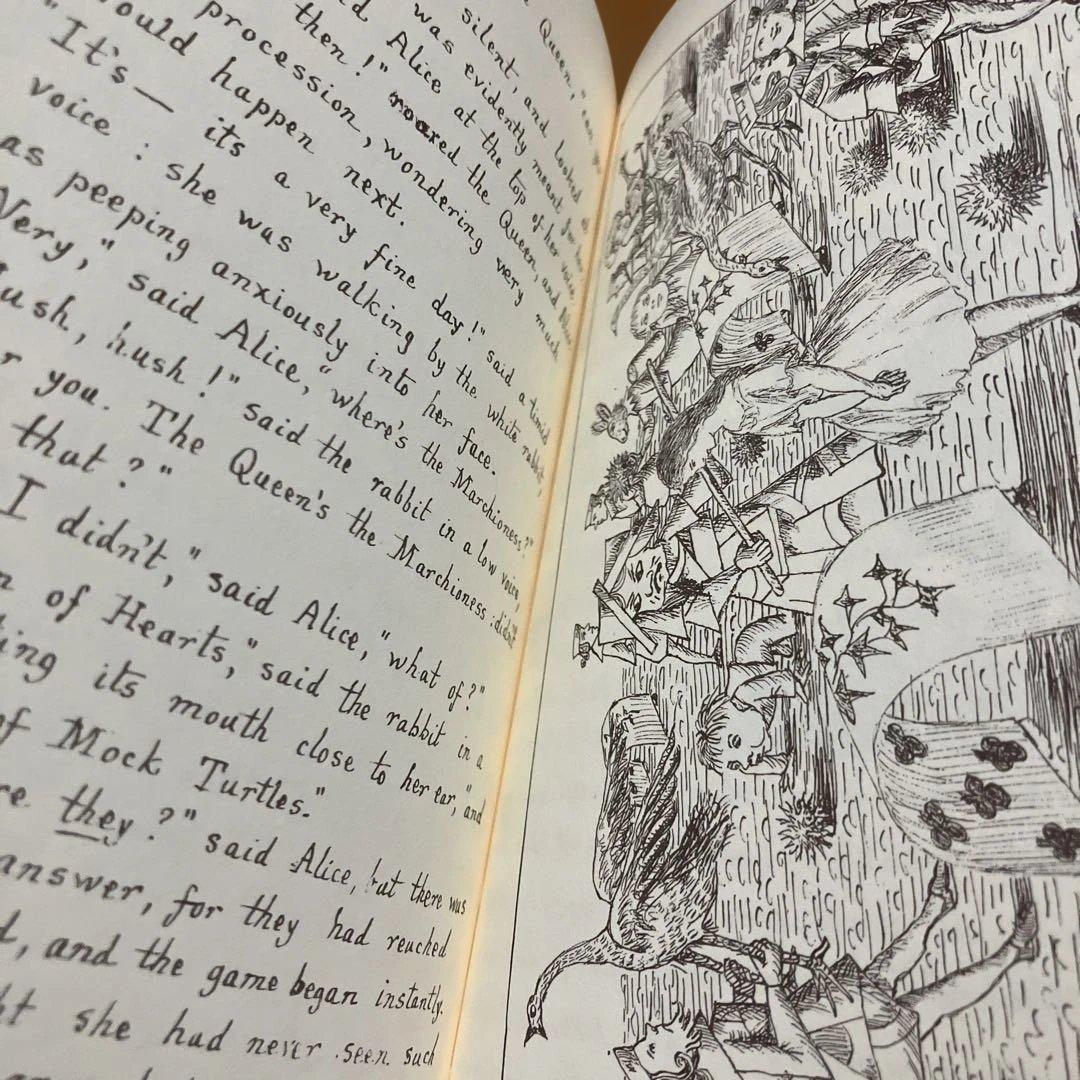 Queen, "can
silent, and looked at
was evidently meant for her
Alice at the top of her voice
then!" roared the Queen, and Alice
procession, wondering very much
would happen next.
"It's— its a very fine day!" said a timid
voice : she was walking by the white rabbit,
as peeping anxiously into her face.
"Very," said Alice, "where's the Marchioness?"
ush, hush!" said the rabbit in a low voice,
r you. The Queen's the Marchioness : didn't
that?"
I didn't," said Alice, "what of?"
n of Hearts," said the rabbit in a
ing its mouth close to her ear, "and
of Mock Turtles."
re they?" said Alice, but there was
answer, for they had reached
d, and the game began instantly.
ht she had never seen such